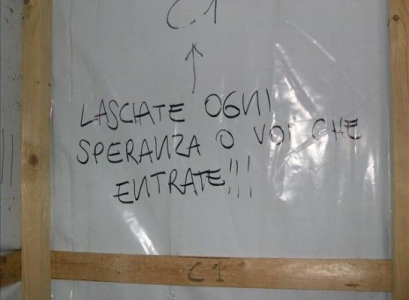 C.1
LASCIATE OGNI
SPERANZA O VOI CHE
ENTRATE!!!
C1